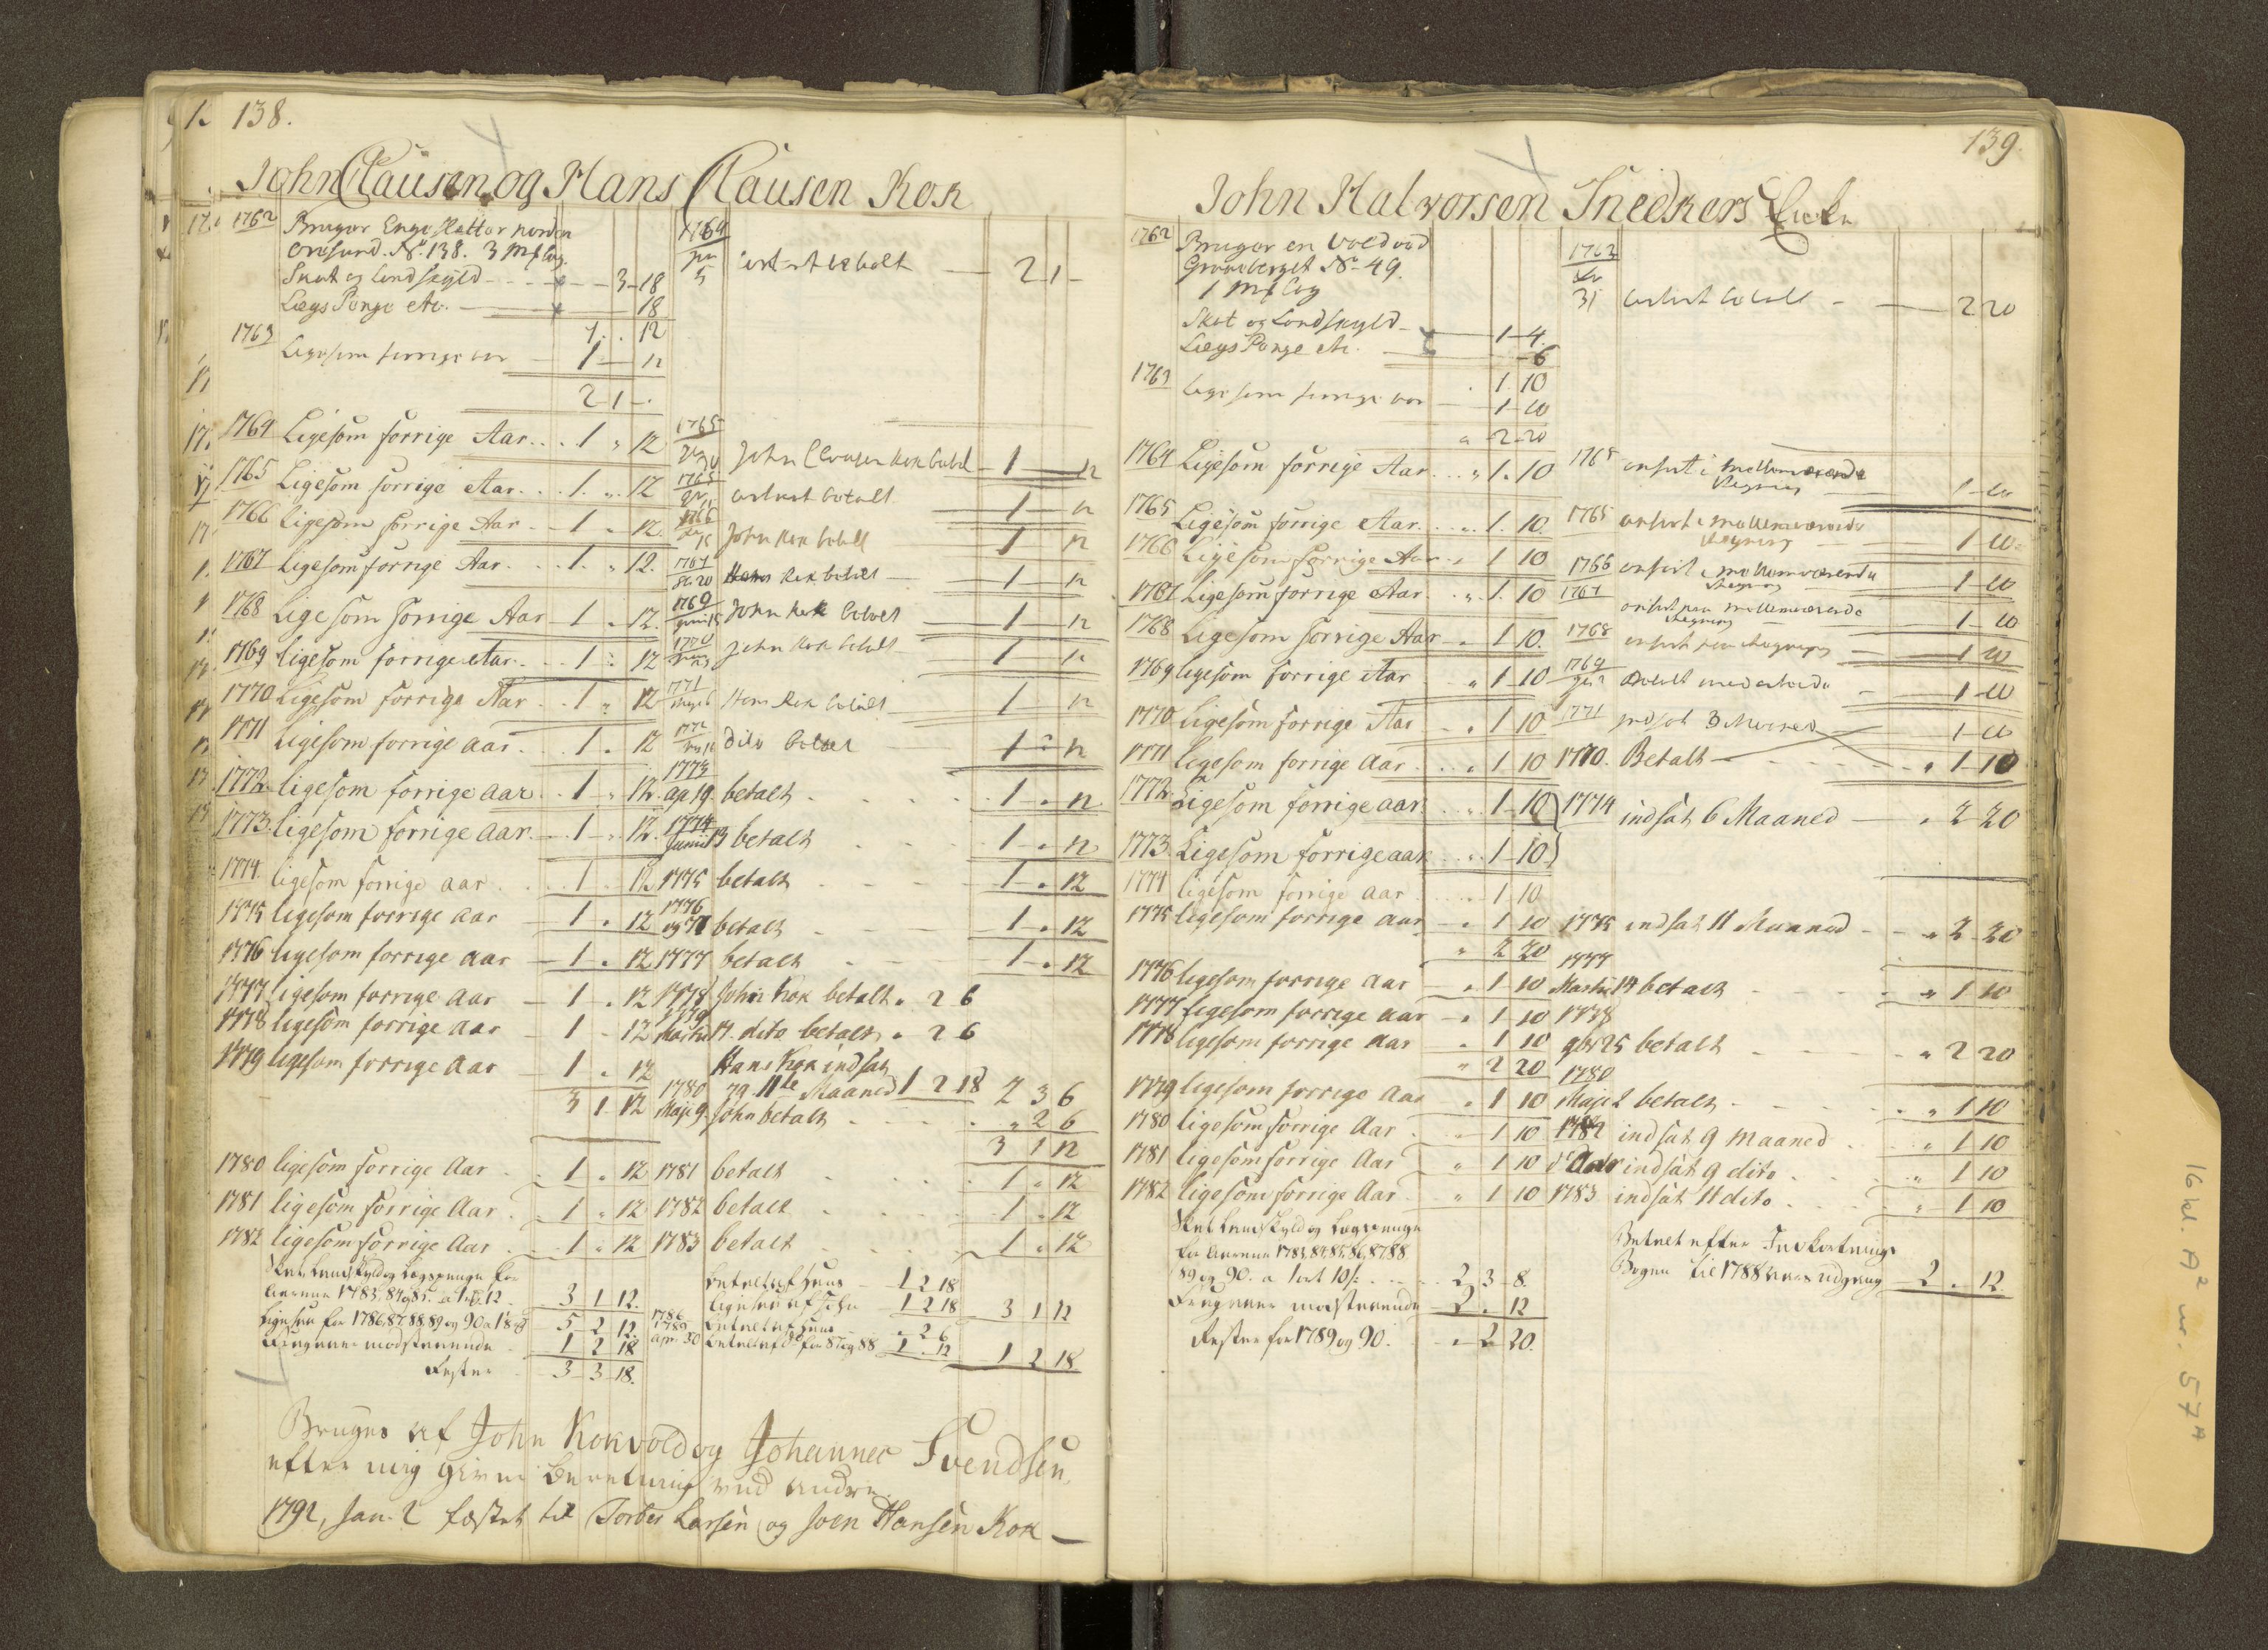 138.
John Clausen og Hans Clausen Kok
1762 Bruger Enge Sletter norden
No. 138. 3 Mk
Skat og Landskyld 3 18
Lægs Penge etc. 18
1 . 12
1763 Ligesom forrige aar 1 12
2 1 -
1764 5 betalt 2 1 -
1764 Ligesom forrige Aar 1 " 12 1765 John Clausen Kok betal 1 12
1765 Ligesom forrige Aar 1 " 12 1765 betalt 1 12
1766 ligesom forrige Aar 1 " 12 1766 John Kok betalt 1 12
1767 Ligesom forrige Aar 1 " 12. 1767 20 Hans Kok betalt 1 12
1768 Ligesom forrige Aar 1 " 12. 1769 John Kok betalt 1 12
1769 ligesom forrige Aar 1 " 12 1770 John Kok betalt 1 12
1770 Ligesom forrige Aar 1 " 12 1771 Hans Kok betalt 1 12
1771 ligesom forrige aar 1 " 12 1772 Dito betalt 1 " 12
1772 ligesom forrige aar 1 " 12. 1773 ap 19 betalt 1 " 12
1773. ligesom forrige aar 1 " 12. 1774 Junii 13 betalt 1 " 12
1774 ligesom forrige aar 1 12 1775 betalt 1 " 12
1775 ligesom forrige aar 1 " 12 1776 betalt 1 " 12
1776 ligesom forrige aar 1 " 12 1777 betalt 1 " 12
1777 ligesom forrige aar 1 " 12 1778 John Kok betalt " 2 6
1778 ligesom forrige aar 1 " 12 1779 Martii 17. dito betalt " 2 6
1779 ligesom forrige aar 1 " 12 Hans Kok indsat
3 1 12 79 11te Maaned 1 2 18 2 3 6
1780 Maji 9. John betalt " 2 6
3 1 12
1780 ligesom forrige Aar 1 " 12 1781 betalt 1 " 12
1781 ligesom forrige Aar 1 " 12 1782 betalt 1 " 12
1782 ligesom forrige Aar 1 " 12 1783 betalt 1 " 12
Skat, Landskyld og Lægspenge for
Aarene 1783, 84 og 85. a 1 12 3 1 12.
Ligesaa for 1786, 87, 88, 89 og 90 a 5 2 12.
Fragaaer modstaaende 1 2 18
Rester 3 3 18.
Betalt af Hans 1 2 18
ligesaa af John 1 2 18 3 1 12
1786 Betalt af Hans " 2 6
1789 apr. 30 betalt af do for 87 og 88 1 " 12 1 2 18
Bruges af John Kokvold og Johannes Svendsen
efter mig given Beretning ved andre.
1792, Jan. 2 fæstet til Torber Larsen og Joen Hansen Kok
139.
John Halvorsen Snedkers Enke
1762 Bruger en Vold ved
Graaeberget No. 49.
1 Mk
Skat og Landskyld 1 4.
Lægs Penge etc. 6
1 10
1763 Ligesom forrige aar 1 10
" 2 20
1763 31 betalt 2 20
1764 Ligesom forrige Aar " 1. 10 1765 anført i mellemværende Regning 1 10
1765 Ligesom forrige Aar " 1. 10. 1765 anført i mellemværende Regning 1 10
1766 Ligesom forrige Aar " 1 10 1766 anført i mellemværende Regning 1 10
1767 Ligesom forrige Aar " 1. 10 1767 anført paa mellemværende Regning 1 10
1768 Ligesom forrige Aar " 1 10. 1768 anført paa Regning 1 10
1769 ligesom forrige Aar " 1 10 1769 Betalt med arbeide 1 10
1770 ligesom forrige Aar " 1 10 1771 indsat 3 Maaned 1 10
1771 ligesom forrige Aar " 1 10 1770. Betalt " 1 10
1772 Ligesom forrige aar " 1 10 1774 indsat 6 Maaned " 2 20
1773 Ligesom forrige aar " 1 10
1774 ligesom forrige aar 1 10
1775 ligesom forrige aar " 1 10 1775 indsat 11 Maaned " 2 20
" 2 20 1777
1776 ligesom forrige aar " 1 10 Martii 17 betalt " 1 10
1777 ligesom forrige aar " 1 10 1778
1778 ligesom forrige aar " 1 10 9br 25 betalt " 2 20
" 2 20 1780
1779 ligesom forrige aar " 1 10 Maji 2 betalt " 1 10
1780 ligesom forrige Aar " 1 10 1782 indsat 9 Maaned " 1 10
1781 ligesom forrige Aar " 1 10 do Aar indsat 9 dito " 1 10
1782 ligesom forrige Aar " 1 10 1783 indsat 11 dito " 1 10
Skat Landskyld og Lægspenge
for Aarene 1783, 84, 85, 86, 87, 88
89 og 90. a 1 ort 10 s: 2 3 8.
Fragaaer modstaaende 2 " 12
Rester for 1789 og 90. " 2 20.
Betalt efter Indkortnings
Bogen til 1788 Aars udgang 2 " 12.
16 kl. A2 nr. 57A